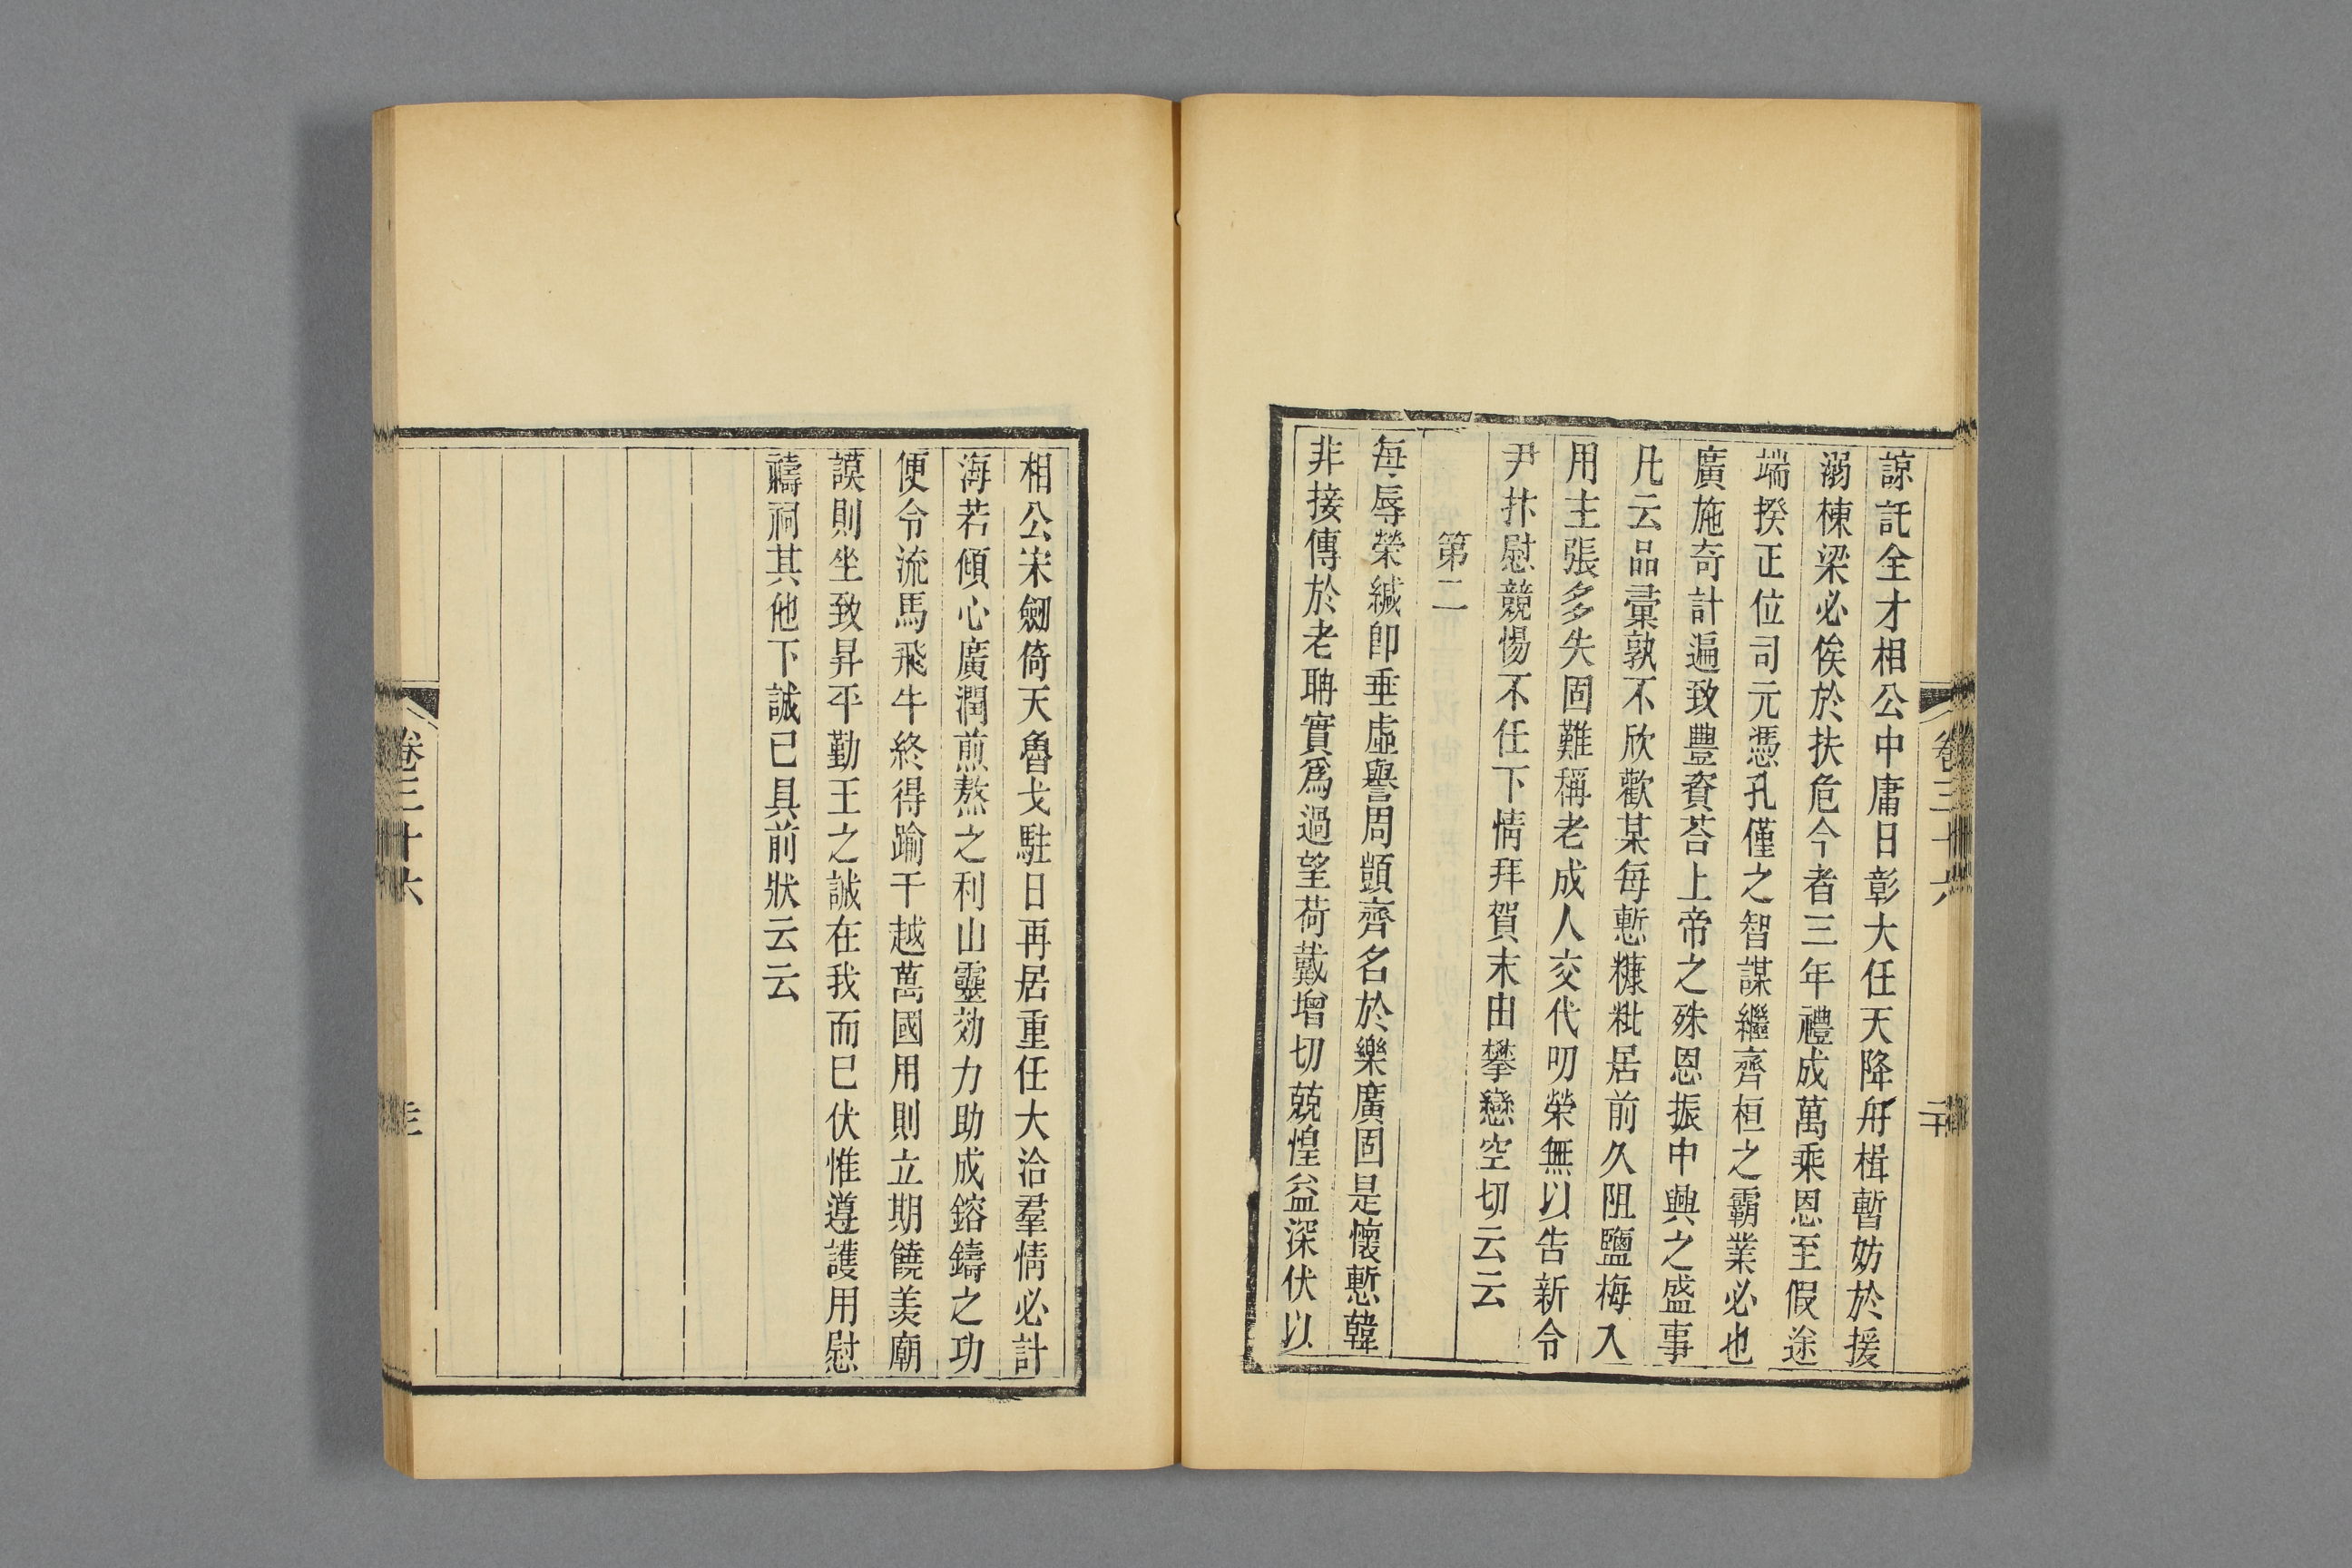 諒託全才相公中庸日彰大任天降舟楫暫妨於援
溺棟梁必俟於扶危今者三年禮成萬乘恩至假途
端揆正位司元憑孔僅之智謀繼齊桓之霸業必也
廣施奇計遍致豐資荅上帝之殊恩振中興之盛事
凡云品彙孰不欣歡某每慙糠粃居前久阻鹽梅入
用主張多失固難稱老成人交代叨榮無以告新令
尹抃慰競惕不任下情拜賀末由攀戀空切云云
第二
每辱榮緘卽垂虛譽周顗齊名於樂廣固是懷慙韓
非接傳於老聃實爲過望荷戴增切兢惶益深伏以
卷三十六
相公宋劒倚天魯戈駐日再居重任大洽羣情必計
海若傾心廣潤煎熬之利山靈効力助成鎔鑄之功
便令流馬飛牛終得踰干越萬國用則立期饒羡廟
謨則坐致昇平勤王之誠在我而已伏惟遵護用慰
禱祠其他下誠已具前狀云云
卷三十六